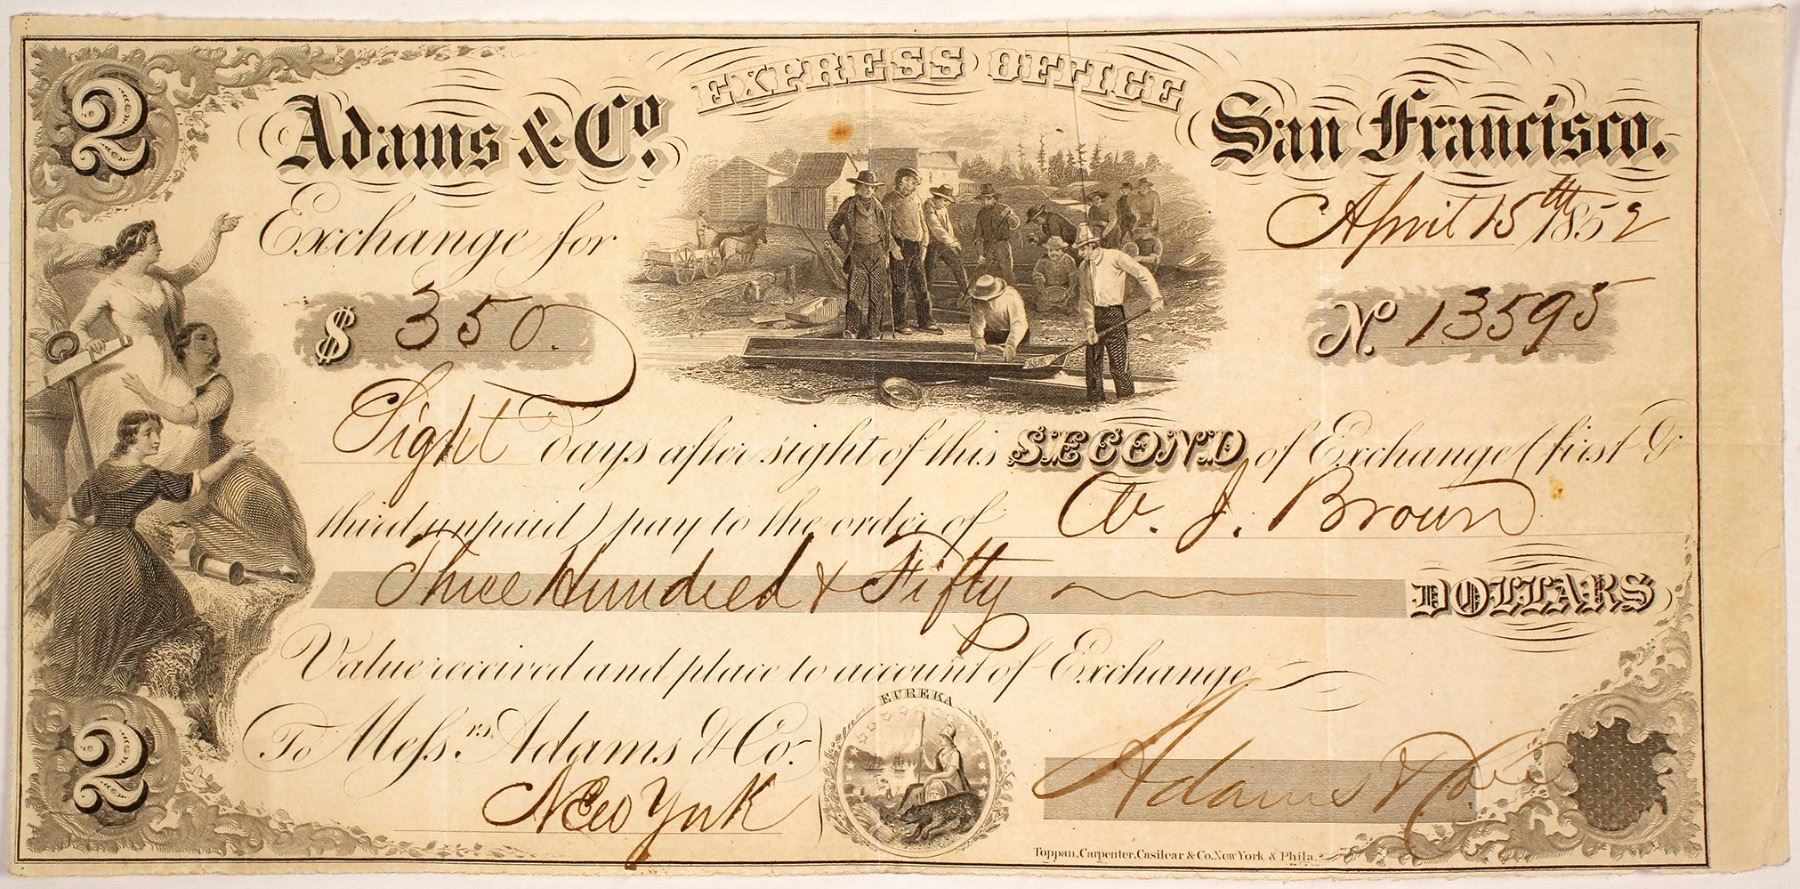 2
EXPRESS OFFICE
Adams & Co.
San Francisco.
April 15th 1852
Exchange for
$ 350.
No. 13595
Sight days after sight of this SECOND of Exchange (first &
third unpaid) pay to the order of W. J. Brown
Three Hundred & Fifty DOLLARS
Value received and place to account of Exchange
To Messrs. Adams & Co.
New York
EUREKA
Adams & Co
2
Toppan, Carpenter, Casilear & Co. New York & Phila.